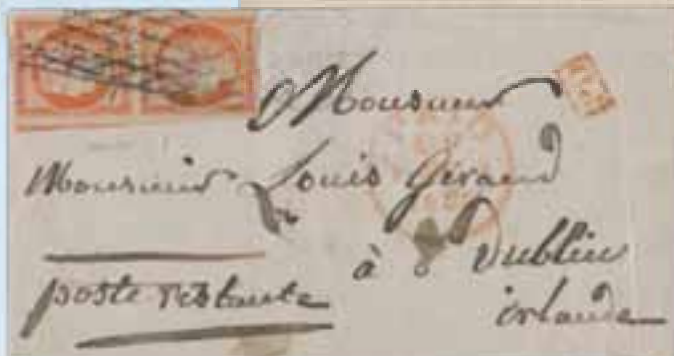 Monsieur
Monsieur Louis Giraud
à Dublin
poste restante
irlande